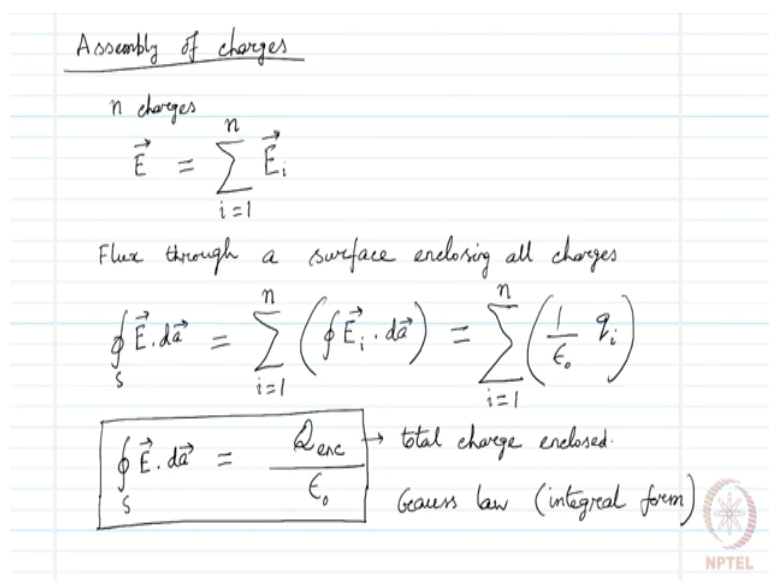 Assembly of charges
n charges
$\vec{E} = \sum_{i=1}^{n} \vec{E}_i$
Flux through a surface enclosing all charges
$\oint_S \vec{E} . d\vec{a} = \sum_{i=1}^{n} \left( \oint \vec{E}_i . d\vec{a} \right) = \sum_{i=1}^{n} \left( \frac{1}{\epsilon_0} q_i \right)$
$\oint_S \vec{E} . d\vec{a} = \frac{Q_{enc}}{\epsilon_0}$ → total charge enclosed.
Gauss law (integral form)
NPTEL